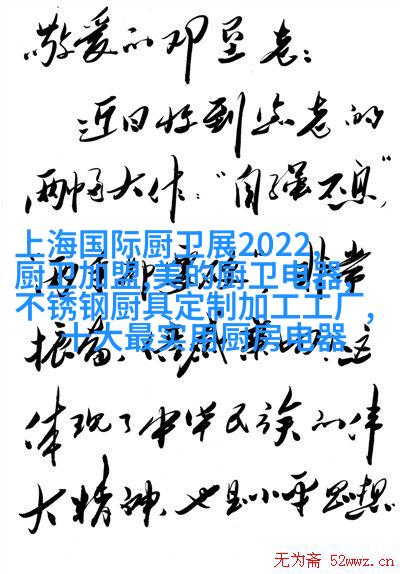 敬爱的邓垦老：
近日收到您老的
两幅大作："自强不息"
上海国际厨卫展2022,
厨卫加盟,美的厨卫电器,
不锈钢厨具定制加工工厂,
十大最实用厨房电器
非常
振奋
这
体现了中华民族的伟
大精神，也是小平思想
无为斋 52wwz.cn